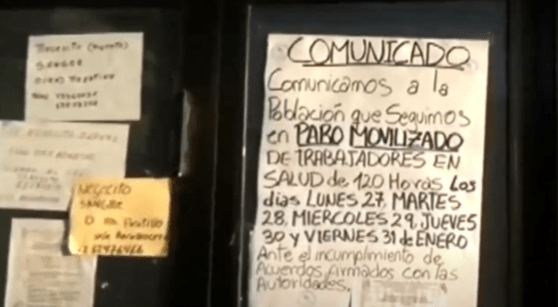 Necesito (Urgente)
SANGRE
COMUNICADO
Comunicamos a la
Población que Seguimos
en PARO MOVILIZADO
DE TRABAJADORES EN
SALUD de 120 Horas Los
dias LUNES 27, MARTES
28, MIERCOLES 29, JUEVES
30 y VIERNES 31 de ENERO
Ante el incumplimiento de
Acuerdos firmados con las
Autoridades.
NECESITO
SANGRE
O RH Positivo